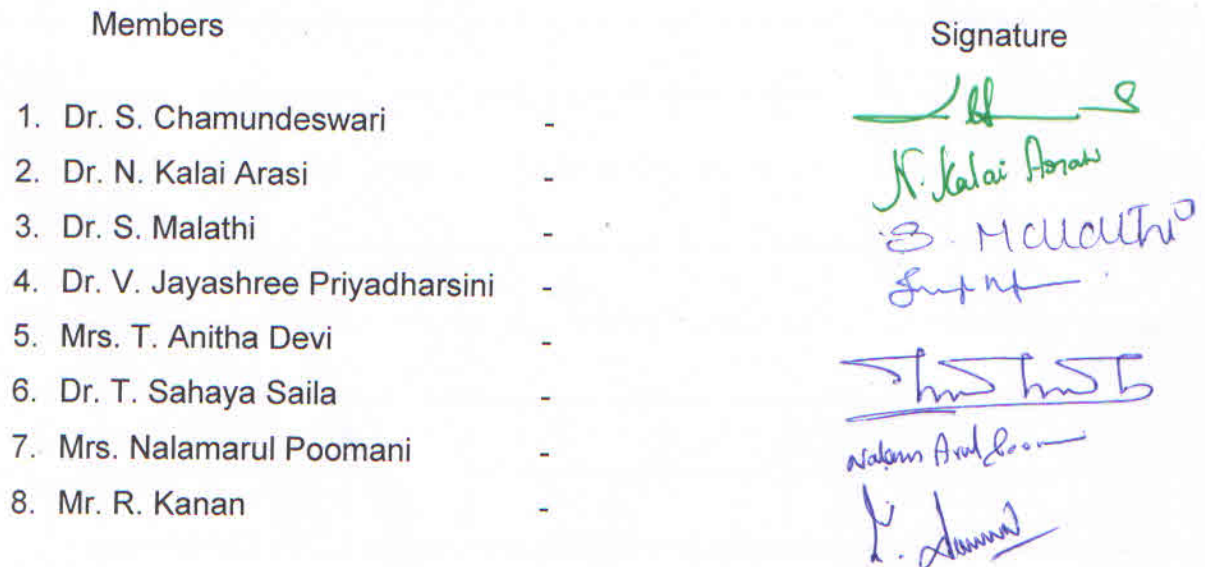 Members Signature
1. Dr. S. Chamundeswari -
2. Dr. N. Kalai Arasi - N. Kalai Arasi
3. Dr. S. Malathi - S. Malathi
4. Dr. V. Jayashree Priyadharsini -
5. Mrs. T. Anitha Devi -
6. Dr. T. Sahaya Saila -
7. Mrs. Nalamarul Poomani -
8. Mr. R. Kanan -